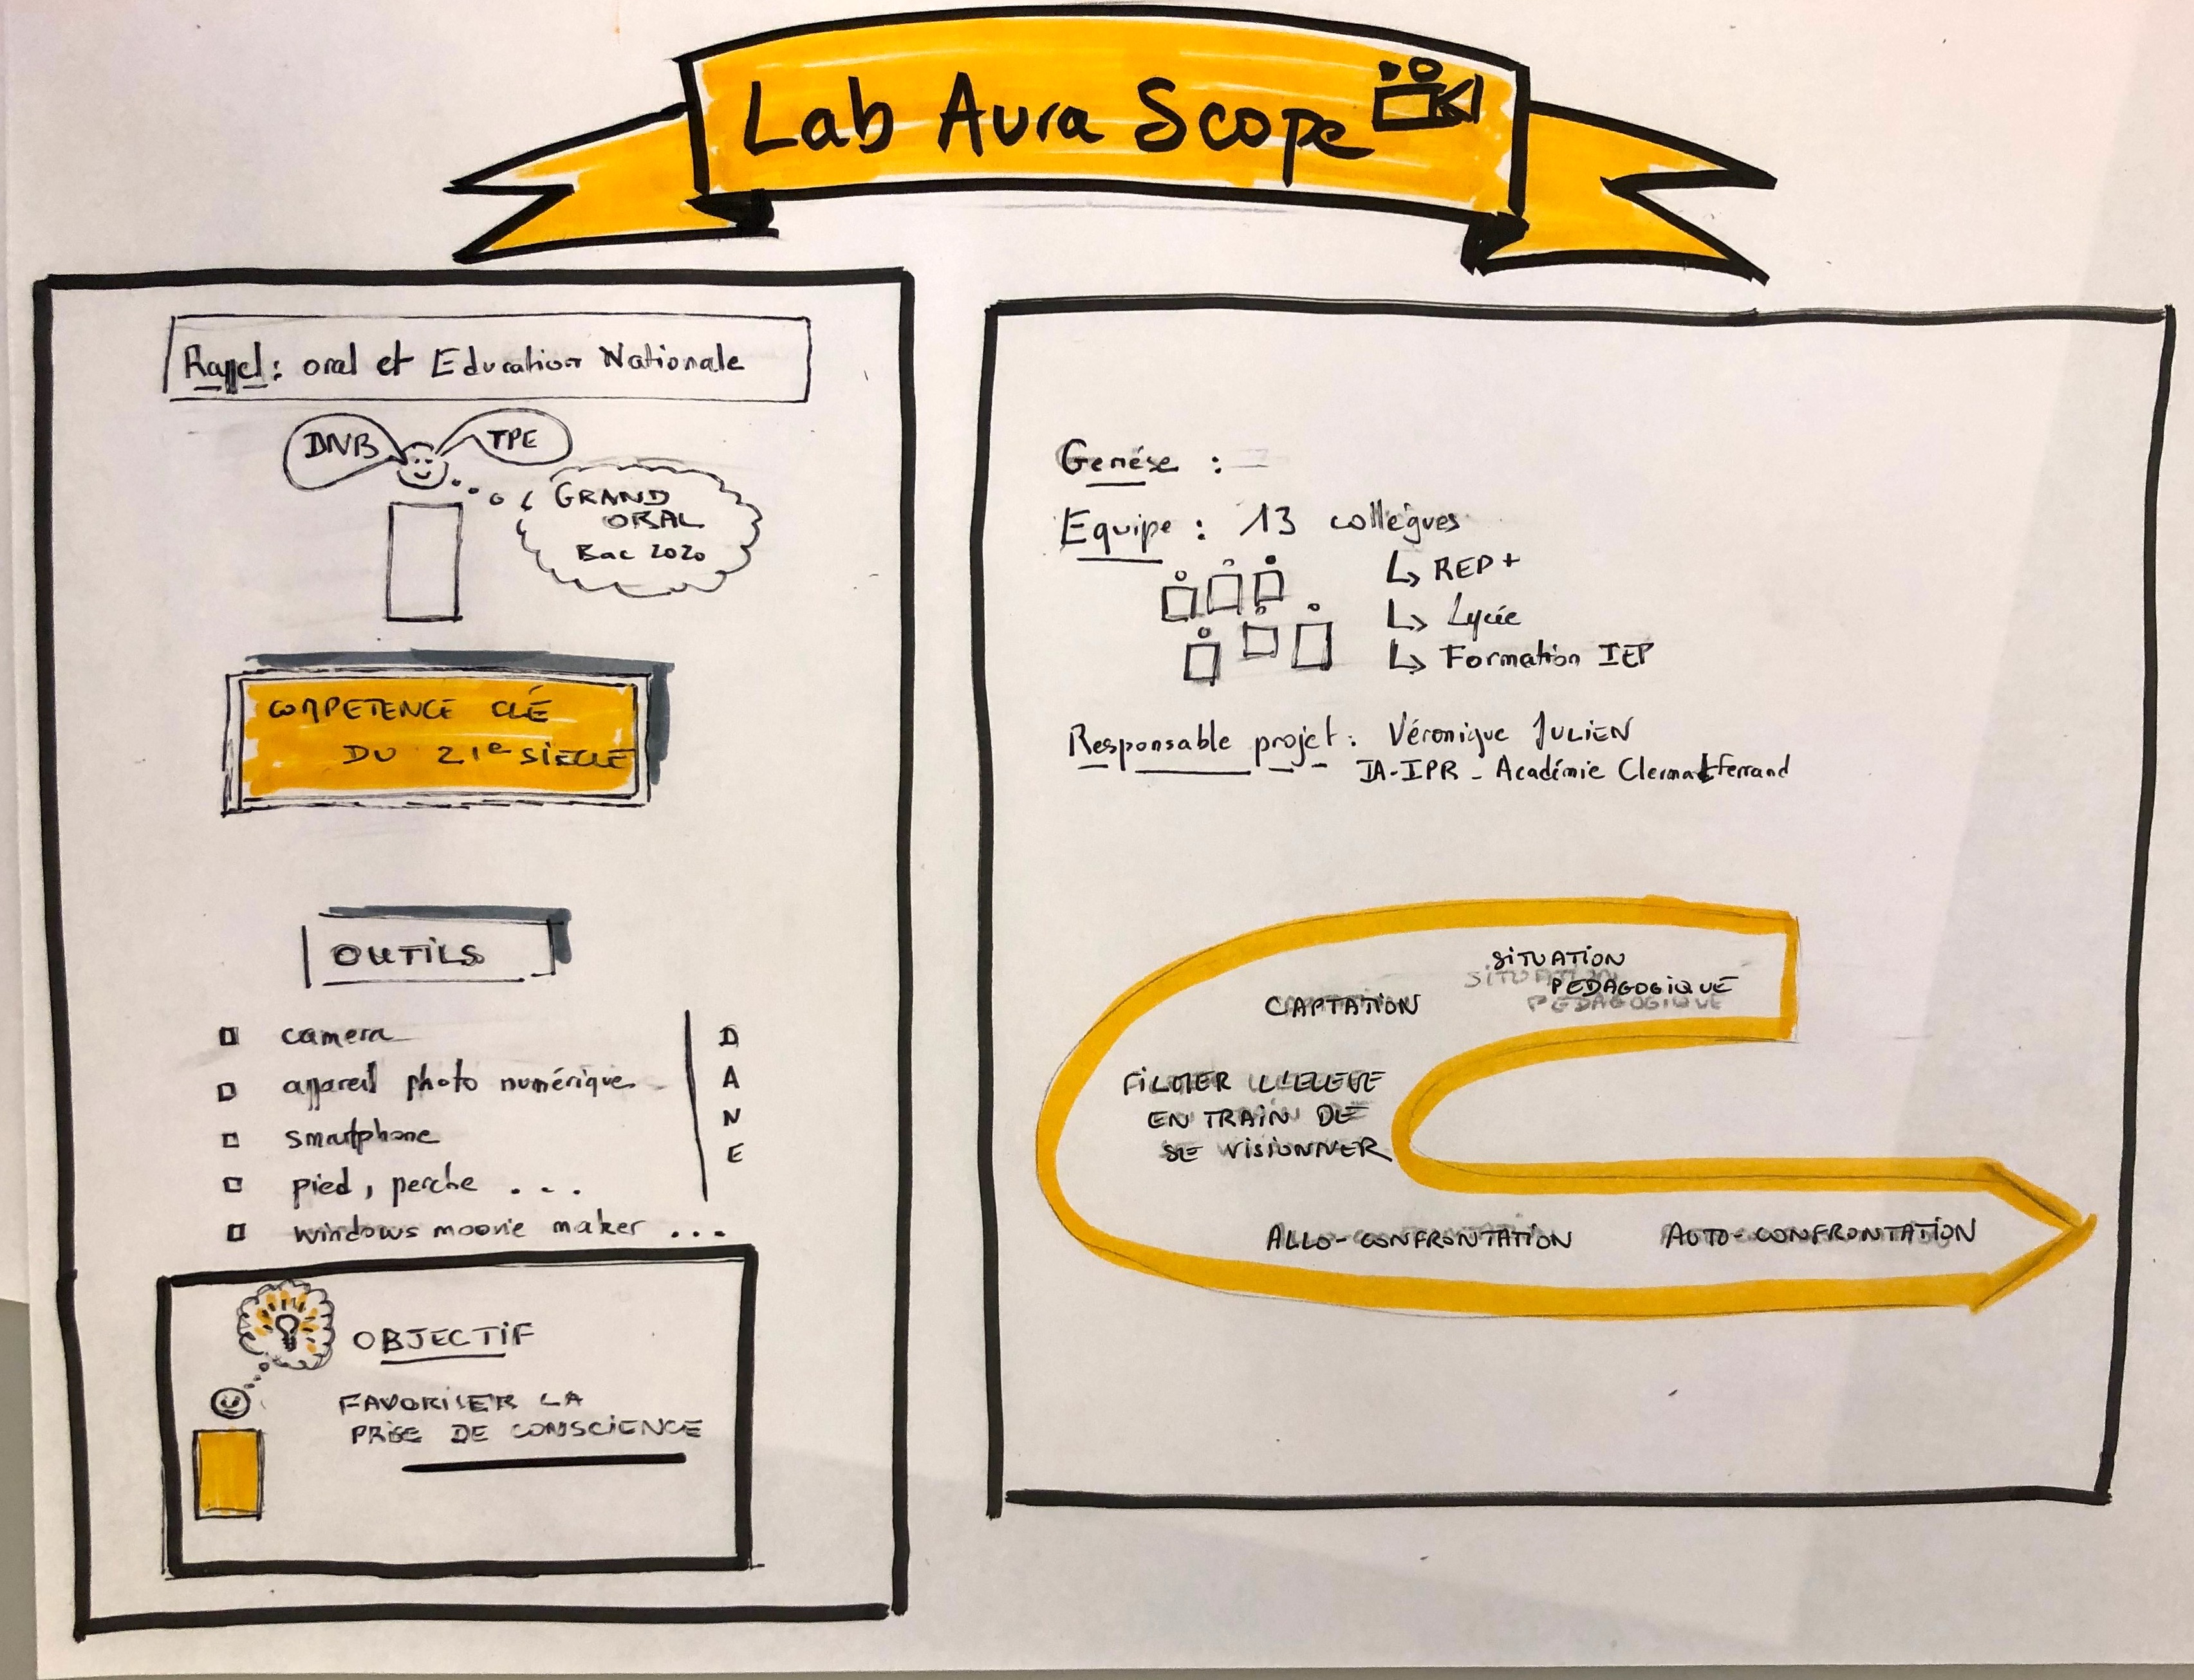 Lab Aura Scope
Rappel : oral et Education Nationale
DNB
TPE
GRAND
ORAL
Bac 2020
COMPETENCE CLÉ
DU 21e SIECLE
OUTILS
camera
appareil photo numérique
smartphone
pied, perche ...
windows moovie maker ...
D
A
N
E
OBJECTIF
FAVORISER LA
PRISE DE CONSCIENCE
Genése :
Equipe : 13 collègues
↳ REP+
↳ Lycée
↳ Formation IEP
Responsable projet : Véronique JULIEN
IA-IPR - Académie Clermont Ferrand
SITUATION
PEDAGOGIQUE
CAPTATION
FILMER L'ELEVE
EN TRAIN DE
SE VISIONNER
ALLO-CONFRONTATION
AUTO-CONFRONTATION